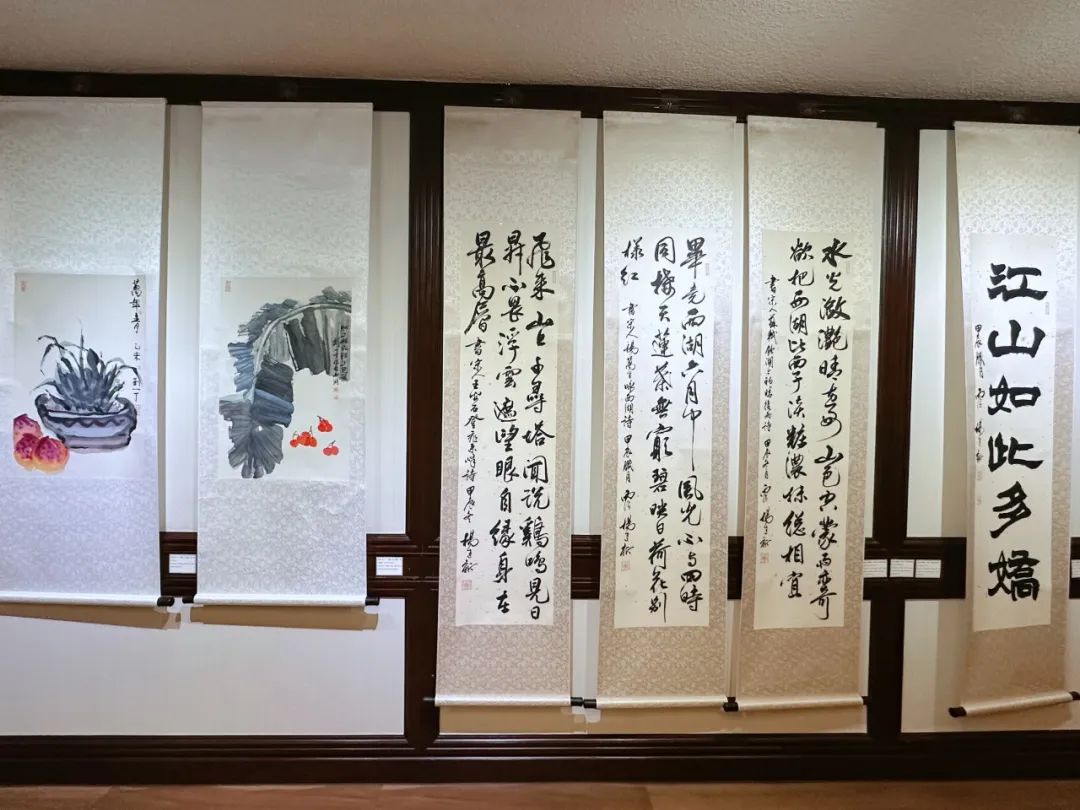 萬年青
乙未
飛來山上千尋塔聞說鷄鳴見日
昇不畏浮雲遮望眼自緣身在
最高層 書宋人王安石登飛來峰詩 甲辰冬 楊
畢竟西湖六月中風光不與四時
同接天蓮葉無窮碧映日荷花別
樣紅 書宋人楊萬里咏西湖詩 甲辰臘月 楊
水光瀲灩晴方好山色空蒙雨亦奇
欲把西湖比西子淡粧濃抹總相宜
書宋人蘇軾飲湖上初晴後雨詩 甲辰 月 楊
江山如此多嬌
甲辰臘月 楊